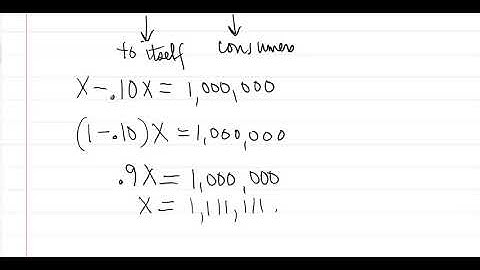 to itself consumers
X-.10X = 1,000,000
(1-.10)X = 1,000,000
.9X = 1,000,000
X = 1,111,111.